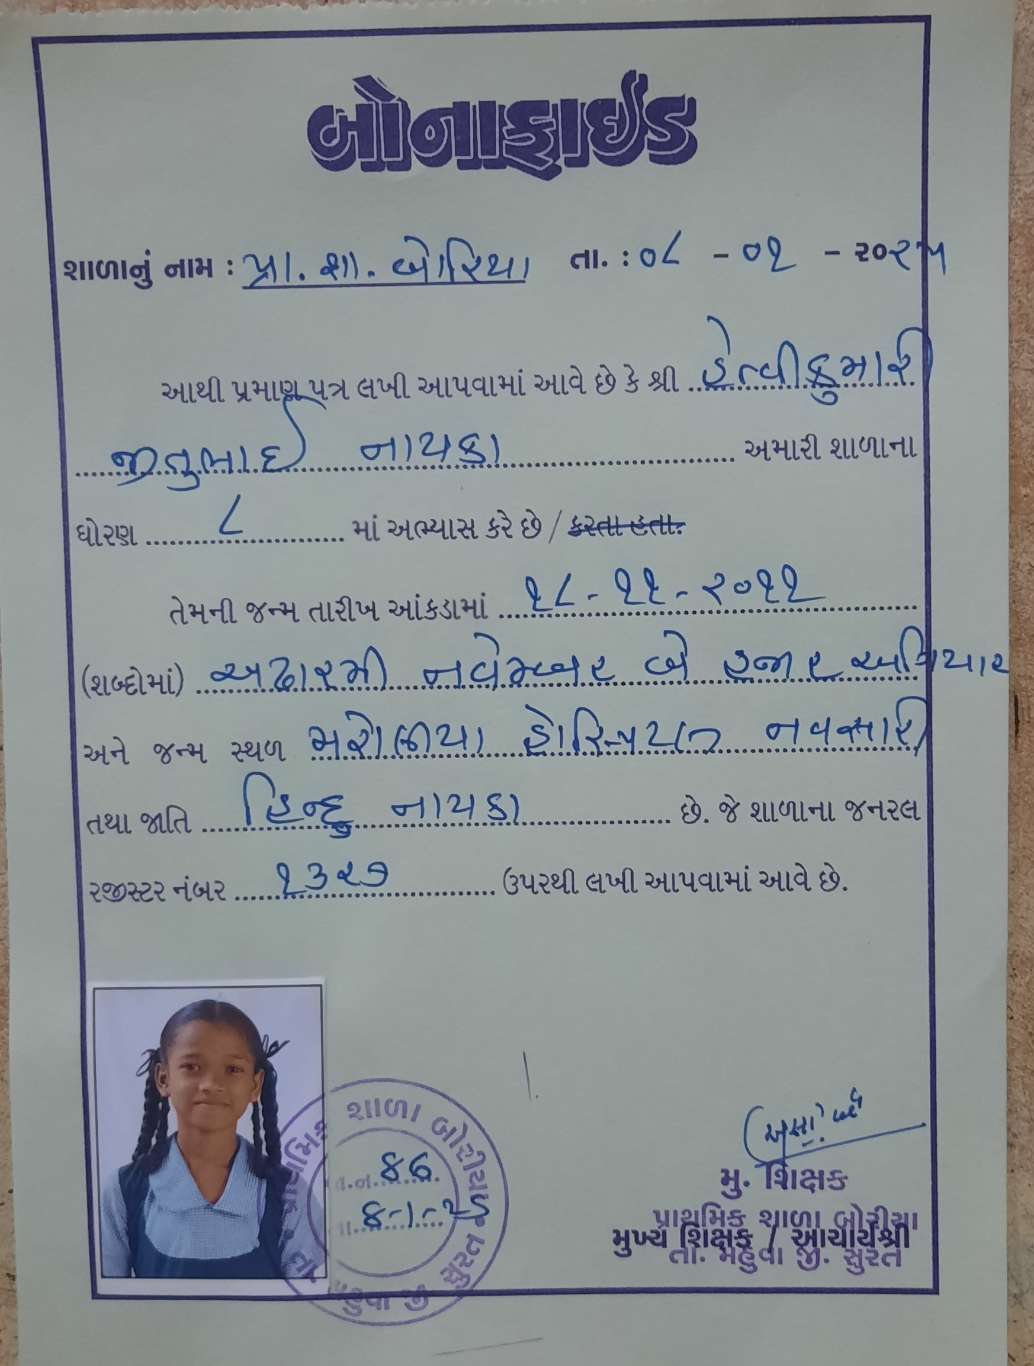 બોનાફાઈડ
શાળાનું નામ : પ્રા. શા. બોરિયા તા. : ૦૮ - ૦૧ - ૨૦૨૫
આથી પ્રમાણ પત્ર લખી આપવામાં આવે છે કે શ્રી હેત્વીકુમારી
જીતુભાઈ નાયકા અમારી શાળાના
ધોરણ ૮ માં અભ્યાસ કરે છે / કરતા હતા.
તેમની જન્મ તારીખ આંકડામાં ૧૮-૧૧-૨૦૧૧
(શબ્દોમાં) અઢારમી નવેમ્બર બે હજાર અગિયાર
અને જન્મ સ્થળ મરોલીયા હોસ્પિટલ નવસારી
તથા જાતિ હિન્દુ નાયકા છે. જે શાળાના જનરલ
રજીસ્ટર નંબર ૧૩૨૭ ઉપરથી લખી આપવામાં આવે છે.
પ્રાથમિક શાળા બોરીયા
86
8-1-25
તા. મહુવા જી. સુરત
મુ. શિક્ષક
પ્રાથમિક શાળા બોરીયા
મુખ્ય શિક્ષક / આચાર્યશ્રી
તા. મહુવા જી. સુરત